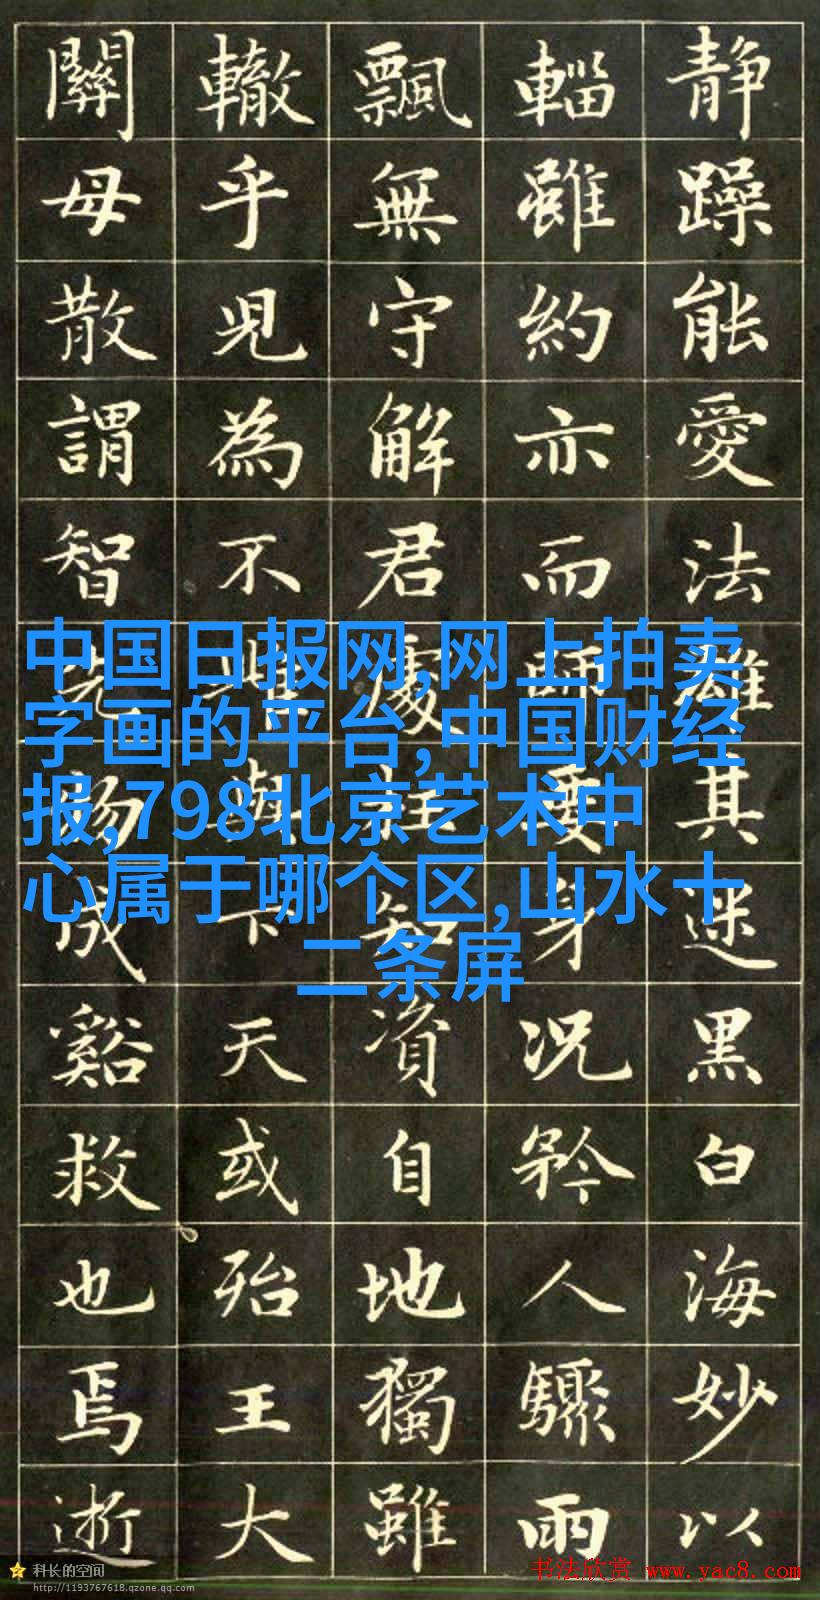 静躁能愛法其迷黑白海妙以
輜雖約亦而師身況矜人驟雨
飄無守解君處知資自地獨雖
轍乎見為不下天或殆王大
關毋散謂智先成谿救也焉逝
中国日报网,网上拍卖
字画的平台,中国财经
报,798北京艺术中
心属于哪个区,山水十
二条屏
科长的空间
http://1193767618.qzone.qq.com
书法欣赏 www.yac8.com